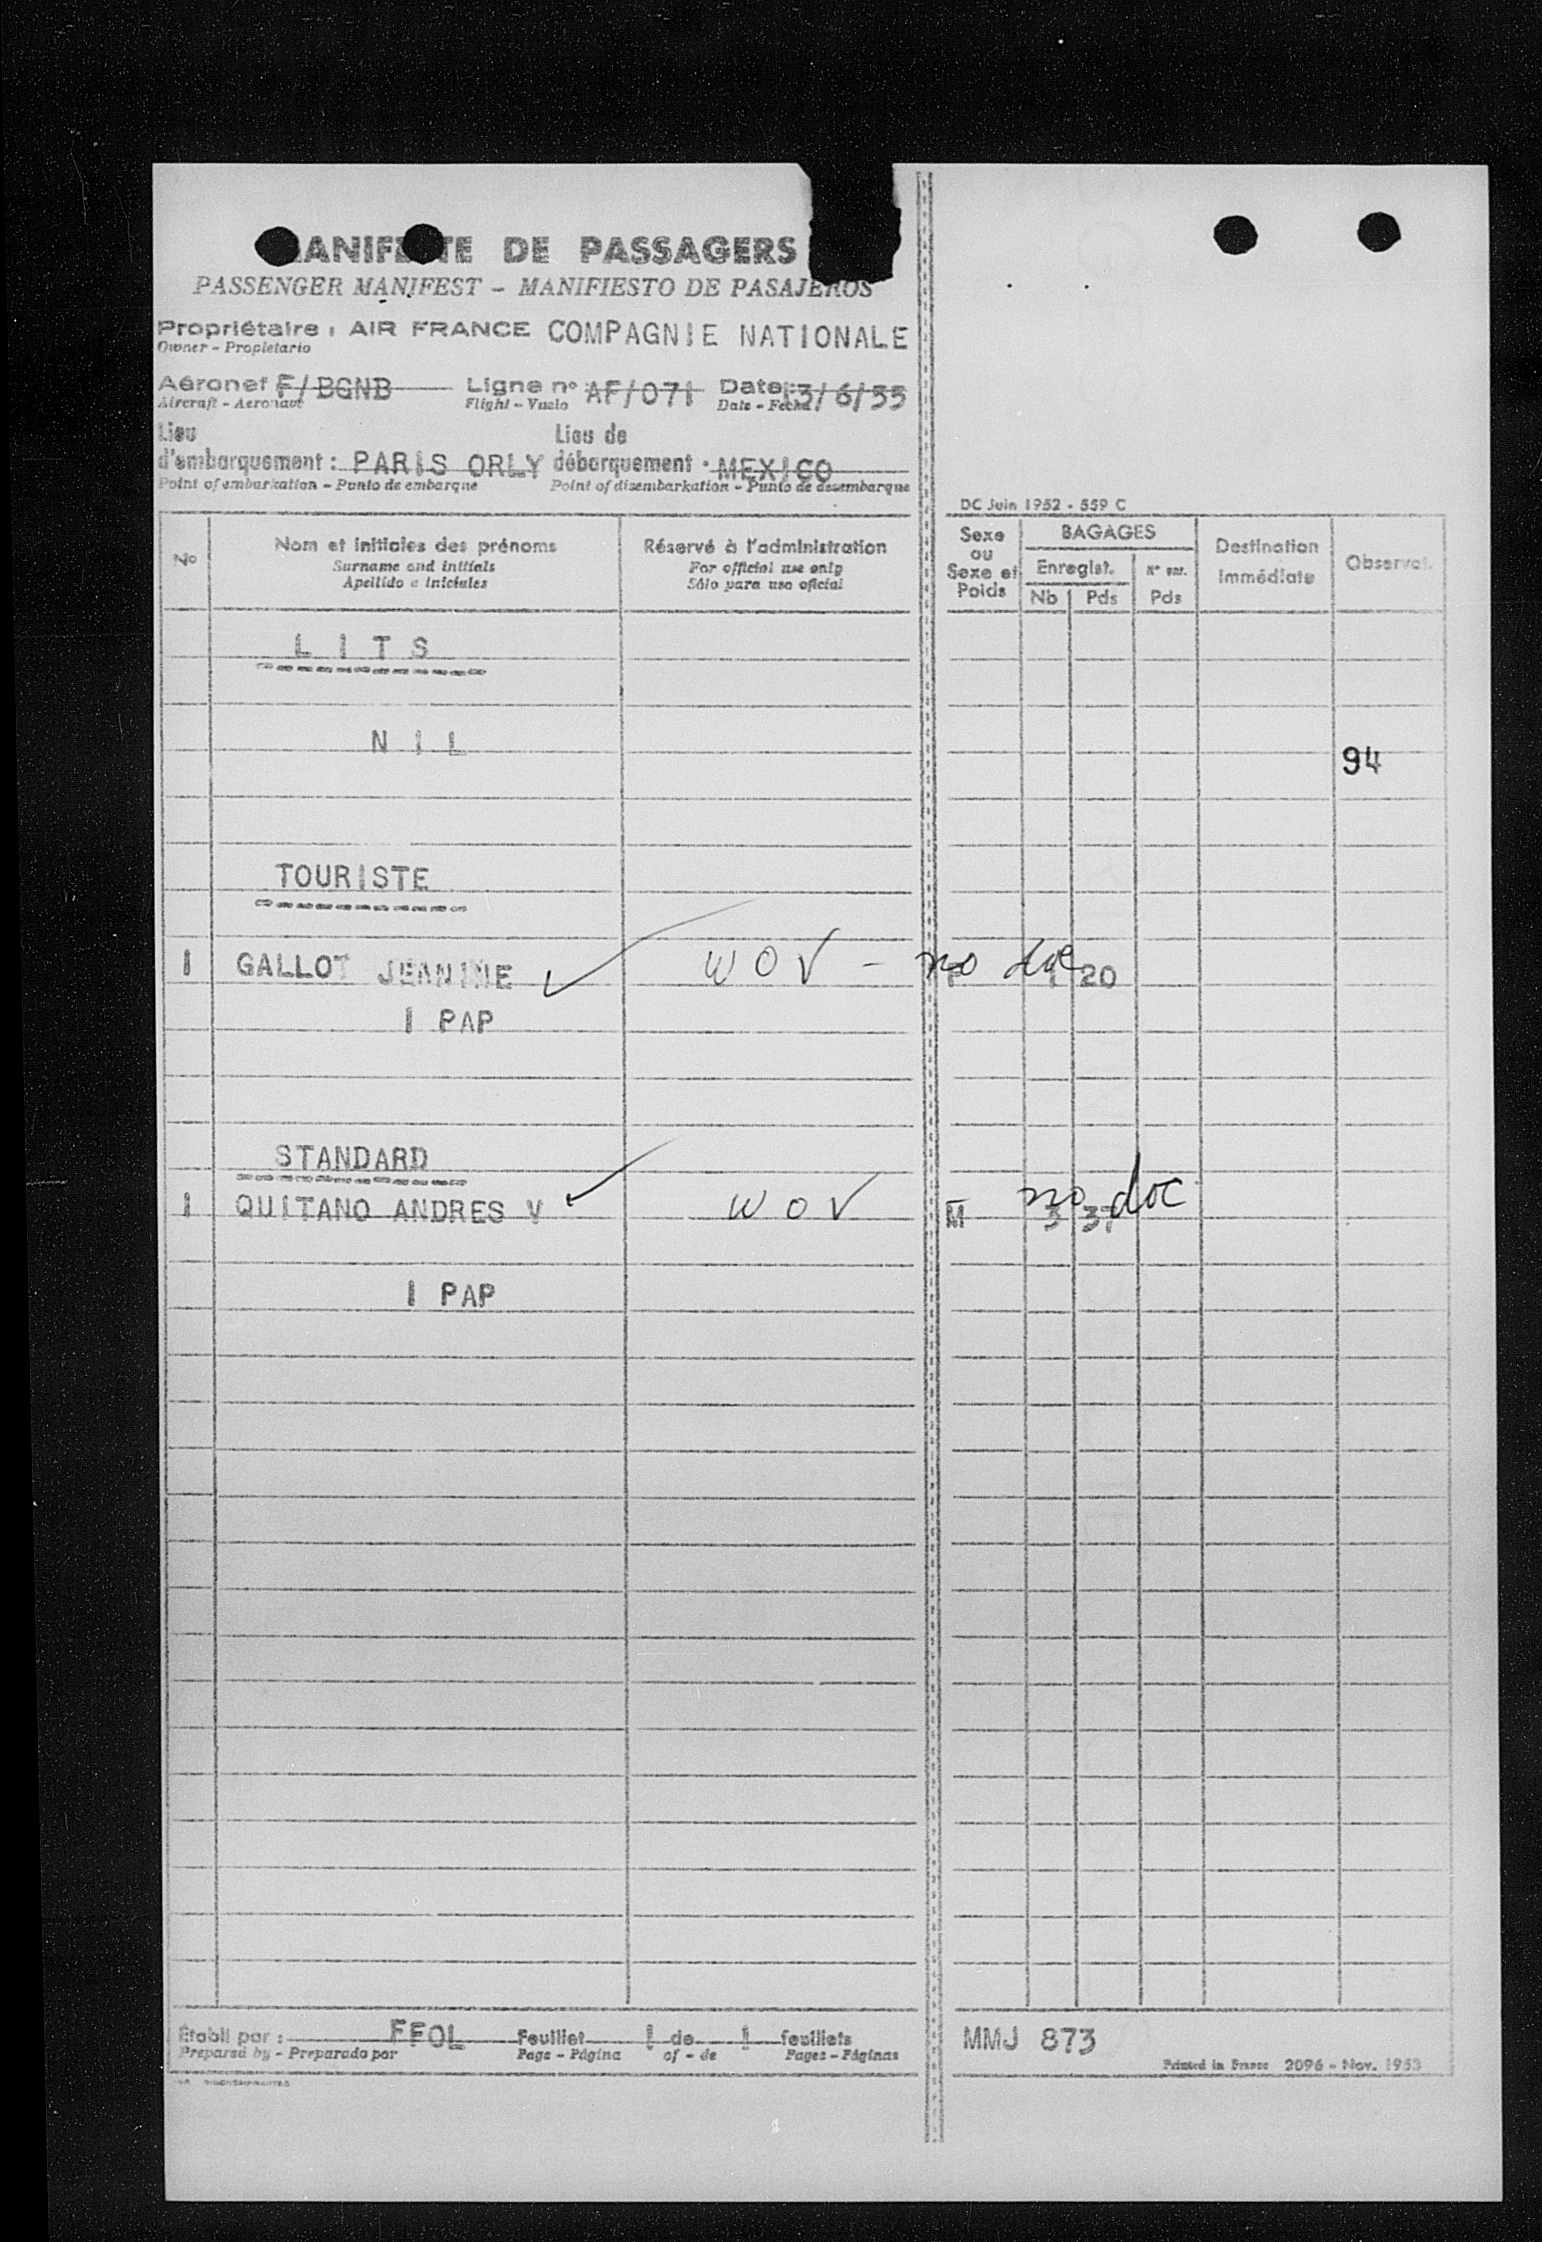 MANIFESTE DE PASSAGERS
PASSENGER MANIFEST - MANIFIESTO DE PASAJEROS
Propriétaire : AIR FRANCE COMPAGNIE NATIONALE
Owner - Propietario
Aéronef F/BGNB Ligne n° AF/071 Date 13/6/55
Aircraft - Aeronave Flight - Vuelo Date - Fecha
Lieu Lieu de
d'embarquement : PARIS ORLY débarquement : MEXICO
Point of embarkation - Punto de embarque Point of disembarkation - Punto de desembarque
DC Juin 1952 - 559 C
No Nom et initiales des prénoms Réservé à l'administration Sexe ou Sexe et Poids BAGAGES Destination immédiate Observat.
Surname and initials For official use only Enregist. N° enr.
Apellido e iniciales Sólo para uso oficial Nb Pds Pds
LITS
NIL
94
TOURISTE
1 GALLOT JEANINE WOV - no doc 20
1 PAP
STANDARD
1 QUITANO ANDRES V WOV M no doc 3 37
1 PAP
Établi par : FFOL Feuillet 1 de 1 feuillets MMJ 873
Prepared by - Preparado por Page - Página of - de Pages - Páginas
Printed in France 2096 - Nov. 1953